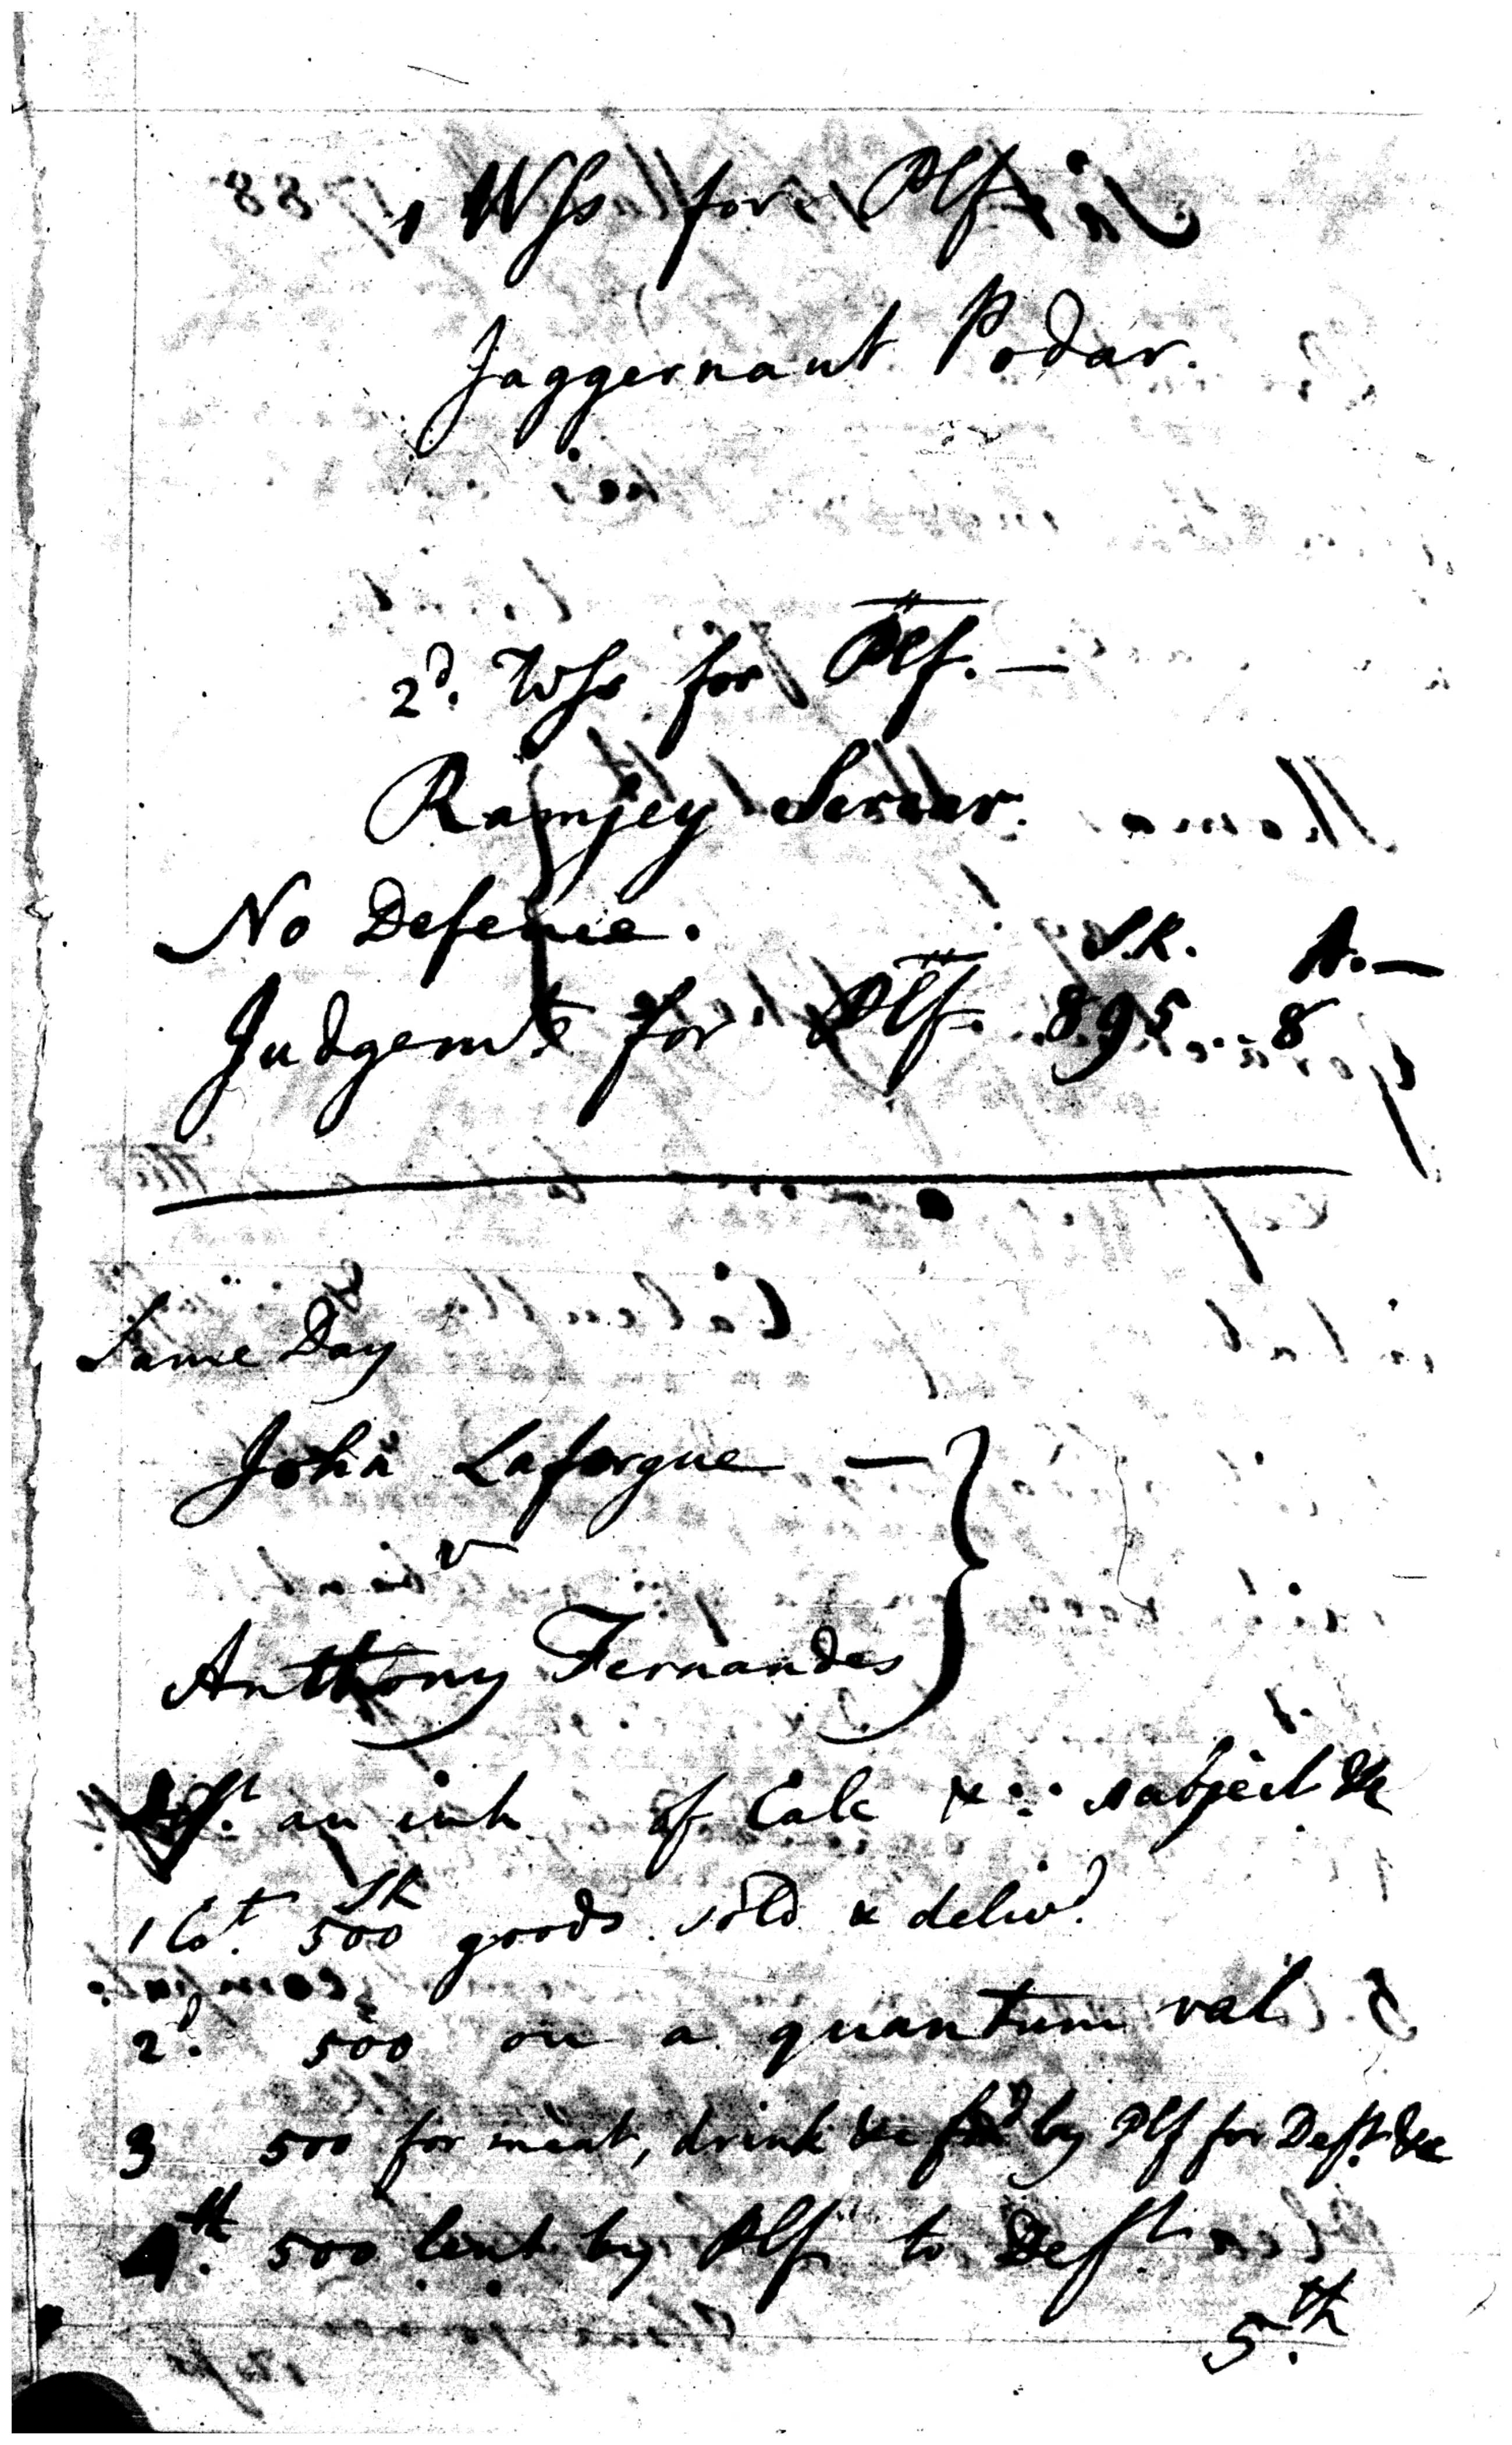 1 Wss for Plf
Jaggernaut Podar.
2d. Wss for Plf. —
Ramjey Sercar.
No Defence.
S.R. A. —
Judgemt for Plf. 895 .. 8
Same Day
John Laforgue —
v
Anthony Fernandes
Deft. an inh of Calc &c subject &c
1 Ct. SR 500 goods sold & delivd.
2d. 500 on a quantum val
3 500 for meat, drink &c fd by Plf for Deft &c
4th. 500 lent by Plf to Deft
5th.